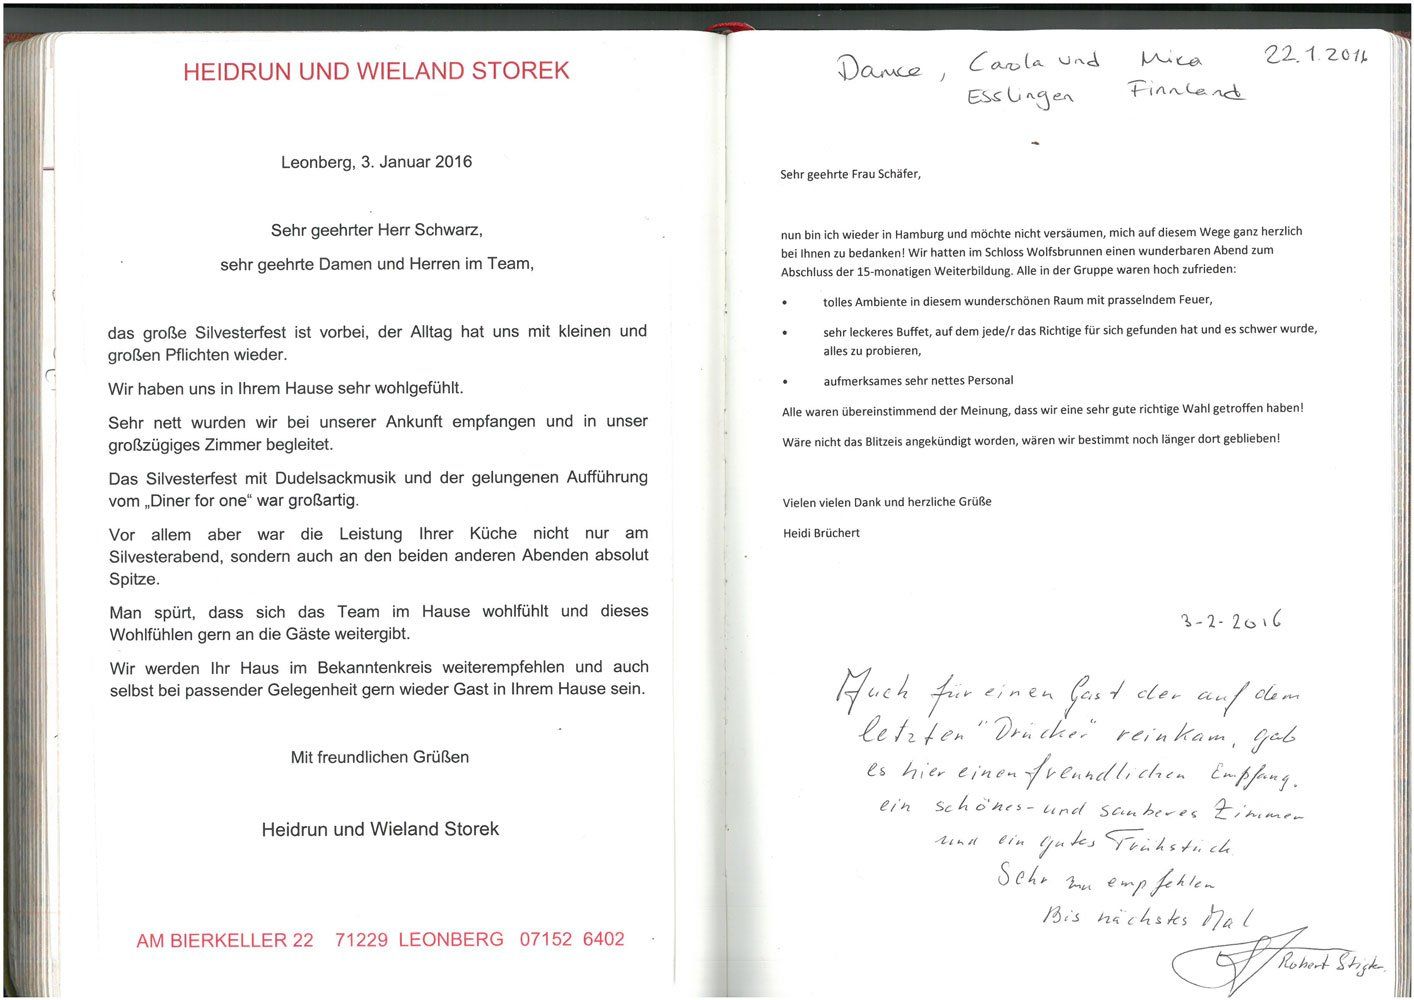 HEIDRUN UND WIELAND STOREK
Leonberg, 3. Januar 2016
Sehr geehrter Herr Schwarz,
sehr geehrte Damen und Herren im Team,
das große Silvesterfest ist vorbei, der Alltag hat uns mit kleinen und
großen Pflichten wieder.
Wir haben uns in Ihrem Hause sehr wohlgefühlt.
Sehr nett wurden wir bei unserer Ankunft empfangen und in unser
großzügiges Zimmer begleitet.
Das Silvesterfest mit Dudelsackmusik und der gelungenen Aufführung
vom „Diner for one“ war großartig.
Vor allem aber war die Leistung Ihrer Küche nicht nur am
Silvesterabend, sondern auch an den beiden anderen Abenden absolut
Spitze.
Man spürt, dass sich das Team im Hause wohlfühlt und dieses
Wohlfühlen gern an die Gäste weitergibt.
Wir werden Ihr Haus im Bekanntenkreis weiterempfehlen und auch
selbst bei passender Gelegenheit gern wieder Gast in Ihrem Hause sein.
Mit freundlichen Grüßen
Heidrun und Wieland Storek
AM BIERKELLER 22 71229 LEONBERG 07152 6402
Danke, Carola und Mica 22.1.2016
Esslingen Finnland
Sehr geehrte Frau Schäfer,
nun bin ich wieder in Hamburg und möchte nicht versäumen, mich auf diesem Wege ganz herzlich
bei Ihnen zu bedanken! Wir hatten im Schloss Wolfsbrunnen einen wunderbaren Abend zum
Abschluss der 15-monatigen Weiterbildung. Alle in der Gruppe waren hoch zufrieden:
• tolles Ambiente in diesem wunderschönen Raum mit prasselndem Feuer,
• sehr leckeres Buffet, auf dem jede/r das Richtige für sich gefunden hat und es schwer wurde,
alles zu probieren,
• aufmerksames sehr nettes Personal
Alle waren übereinstimmend der Meinung, dass wir eine sehr gute richtige Wahl getroffen haben!
Wäre nicht das Blitzeis angekündigt worden, wären wir bestimmt noch länger dort geblieben!
Vielen vielen Dank und herzliche Grüße
Heidi Brüchert
3-2-2016
Auch für einen Gast der auf dem
letzten "Drücker" reinkam, gab
es hier einen freundlichen Empfang.
ein schönes- und sauberes Zimmer
und ein gutes Frühstück
Sehr zu empfehlen
Bis nächstes Mal
Robert